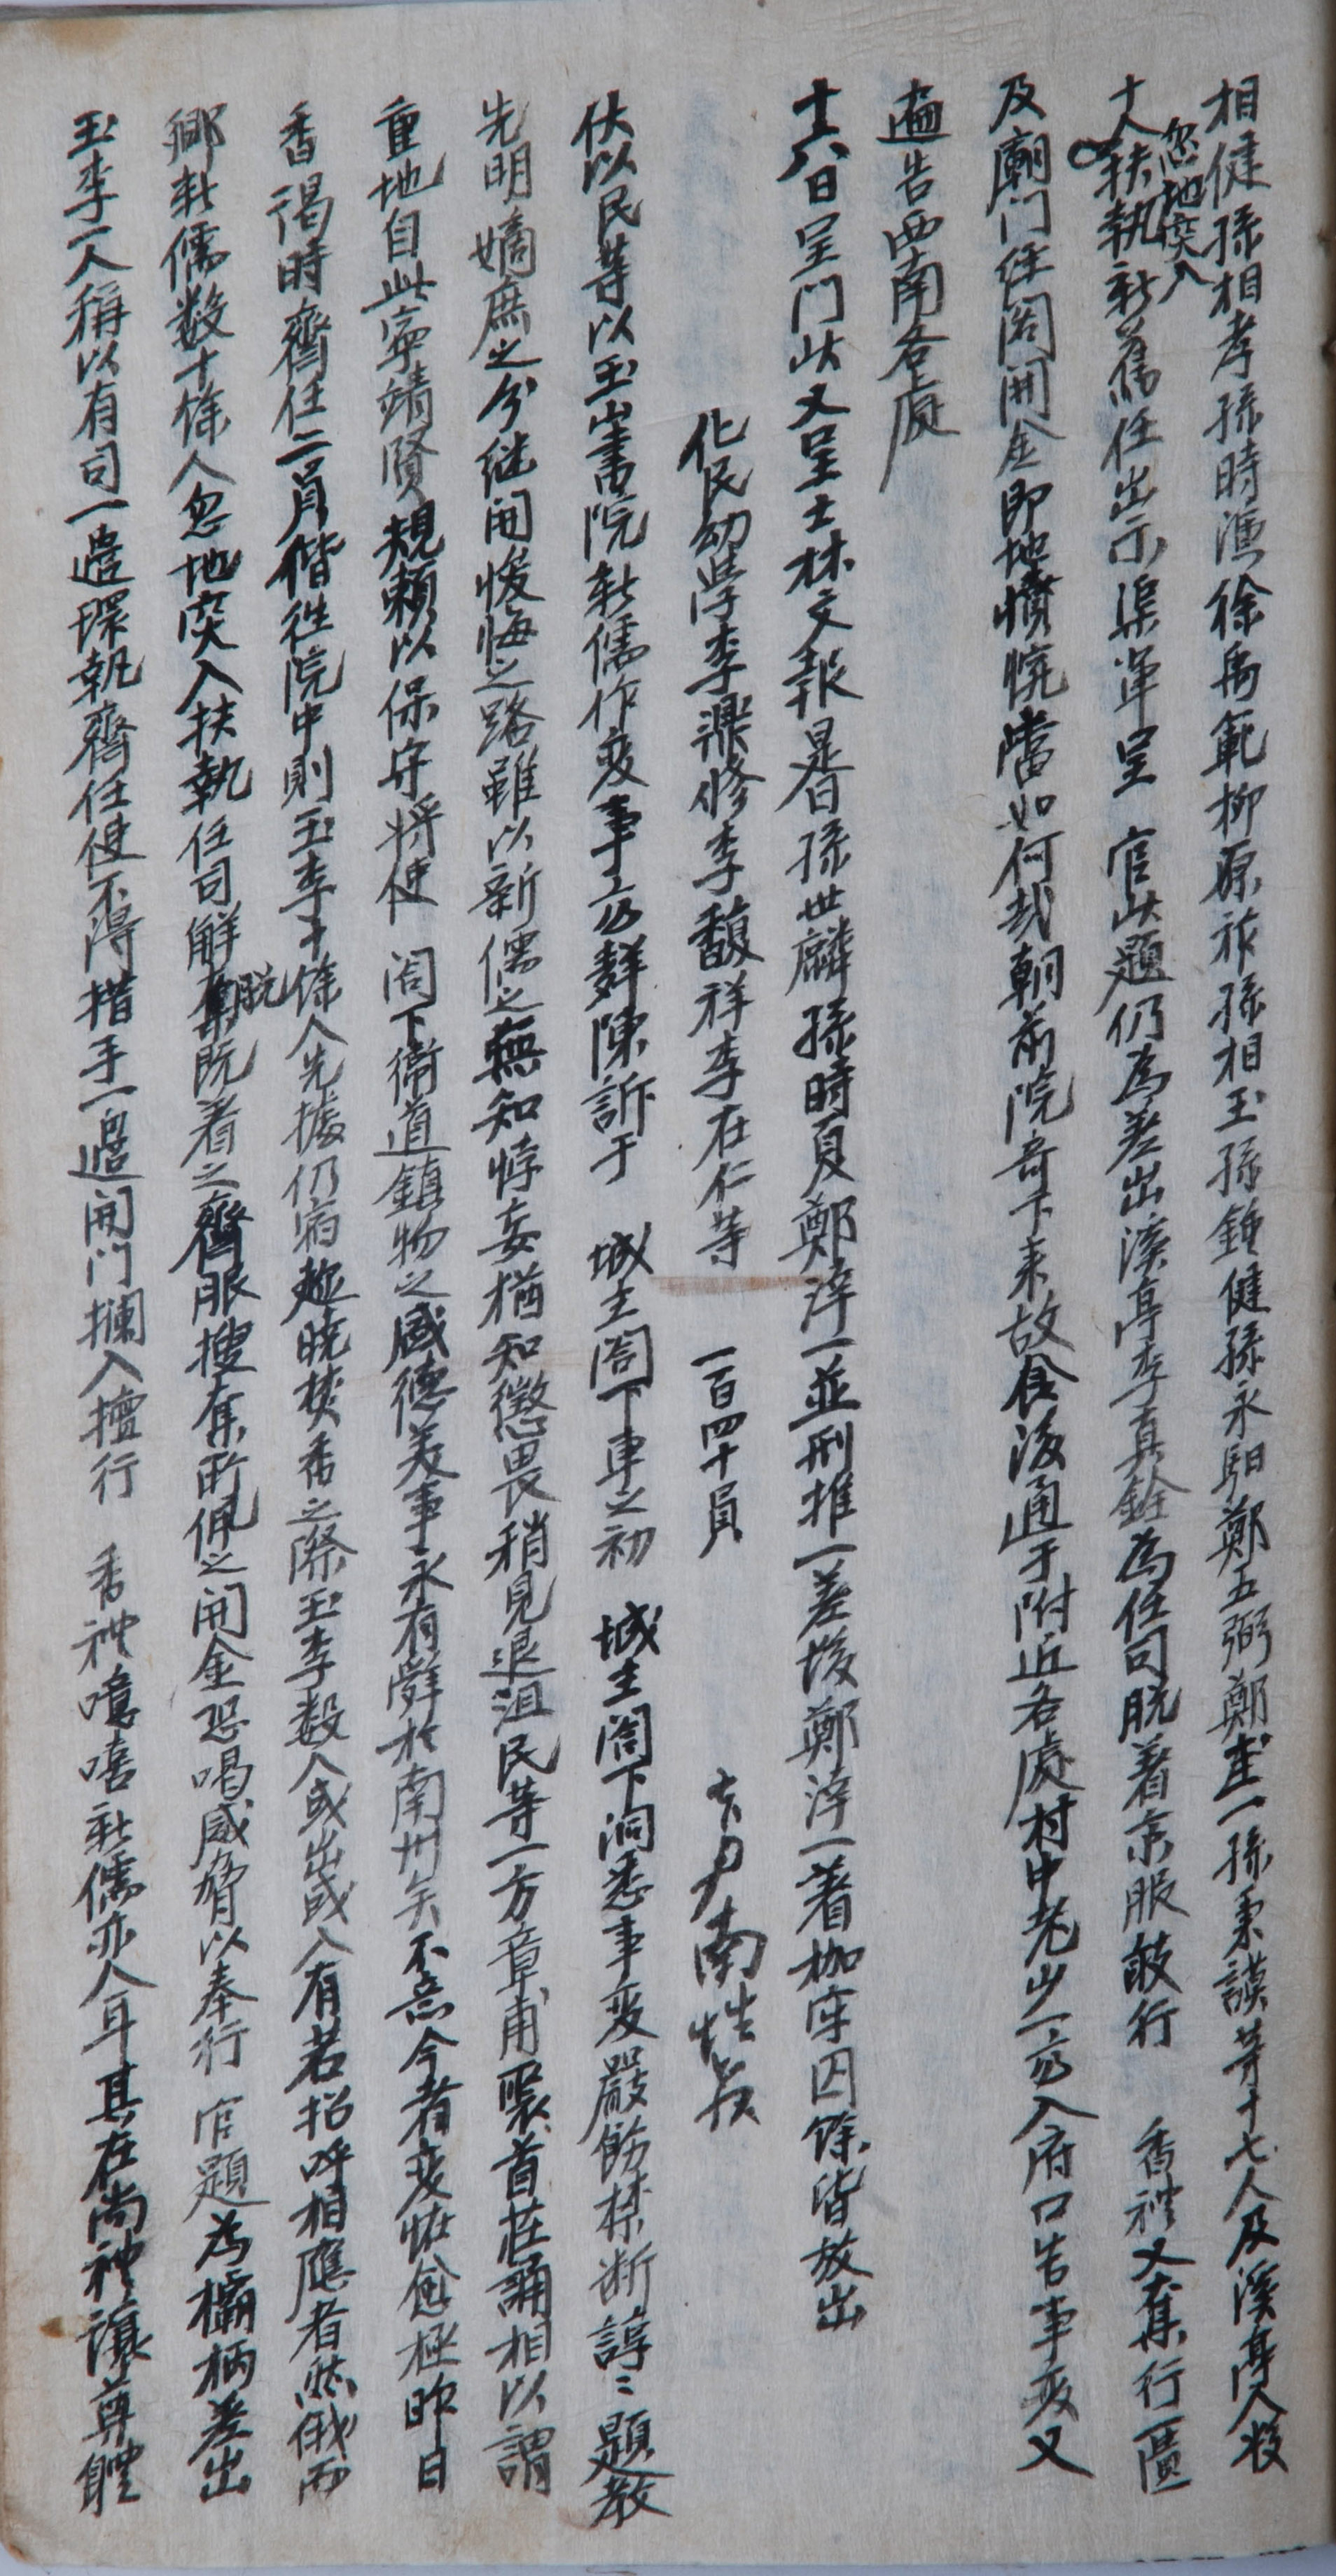 相健孫相孝孫時漁徐禹範柳原祚孫相玉孫鍾健孫永馹鄭五弼鄭圭一孫秉謨等十七人及溪亭人數
十人忽地突入扶執新舊任出示渠輩呈 官此題仍為差出溪亭李真銓為任司脫着京服鼓行 香禮又奪行匱
及廟门任閣開金即地憤惋當如何哉朝前院奇下来故食後通于附近各處村中老少一齊入府口告事变又
遍告西南各處
十六日呈门狀又呈士林文報是日孫世麟孫時夏鄭滓一並刑推一差後鄭滓一着枷牢囚餘皆放出
化民幼學李鼎修李馥祥李在仁等 一百四十員
伏以民等以玉山書院新儒作变事齊辞陳訴于 城主閤下車之初 城主閤下洞悉事变嚴飭禁断諄〻題教
先明嫡庶之分继開悛悔之路雖以新儒之無知悖妄猶知懲畏稍見退沮民等一方章甫聚首莊誦相以謂
重地自此寧靖賢規賴以保守将使 閤下衛道鎮物之盛德美事永有辞於南州矣不意今者变恠愈極昨日
香謁時齊任二員偕徃院中則玉李十餘人先據仍宿趂晓焚香之際玉李數人或出或入有若招呼相應者然俄而
鄉新儒数十餘人忽地突入扶執任司解脫既着之齊服搜奪所佩之開金恐喝威脅以奉行 官題為欛柄差出
玉李一人稱以有司一邊環執齊任使不得措手一邊開门攔入擅行 香禮噫嘻新儒亦人耳其在尚禮讓尊體